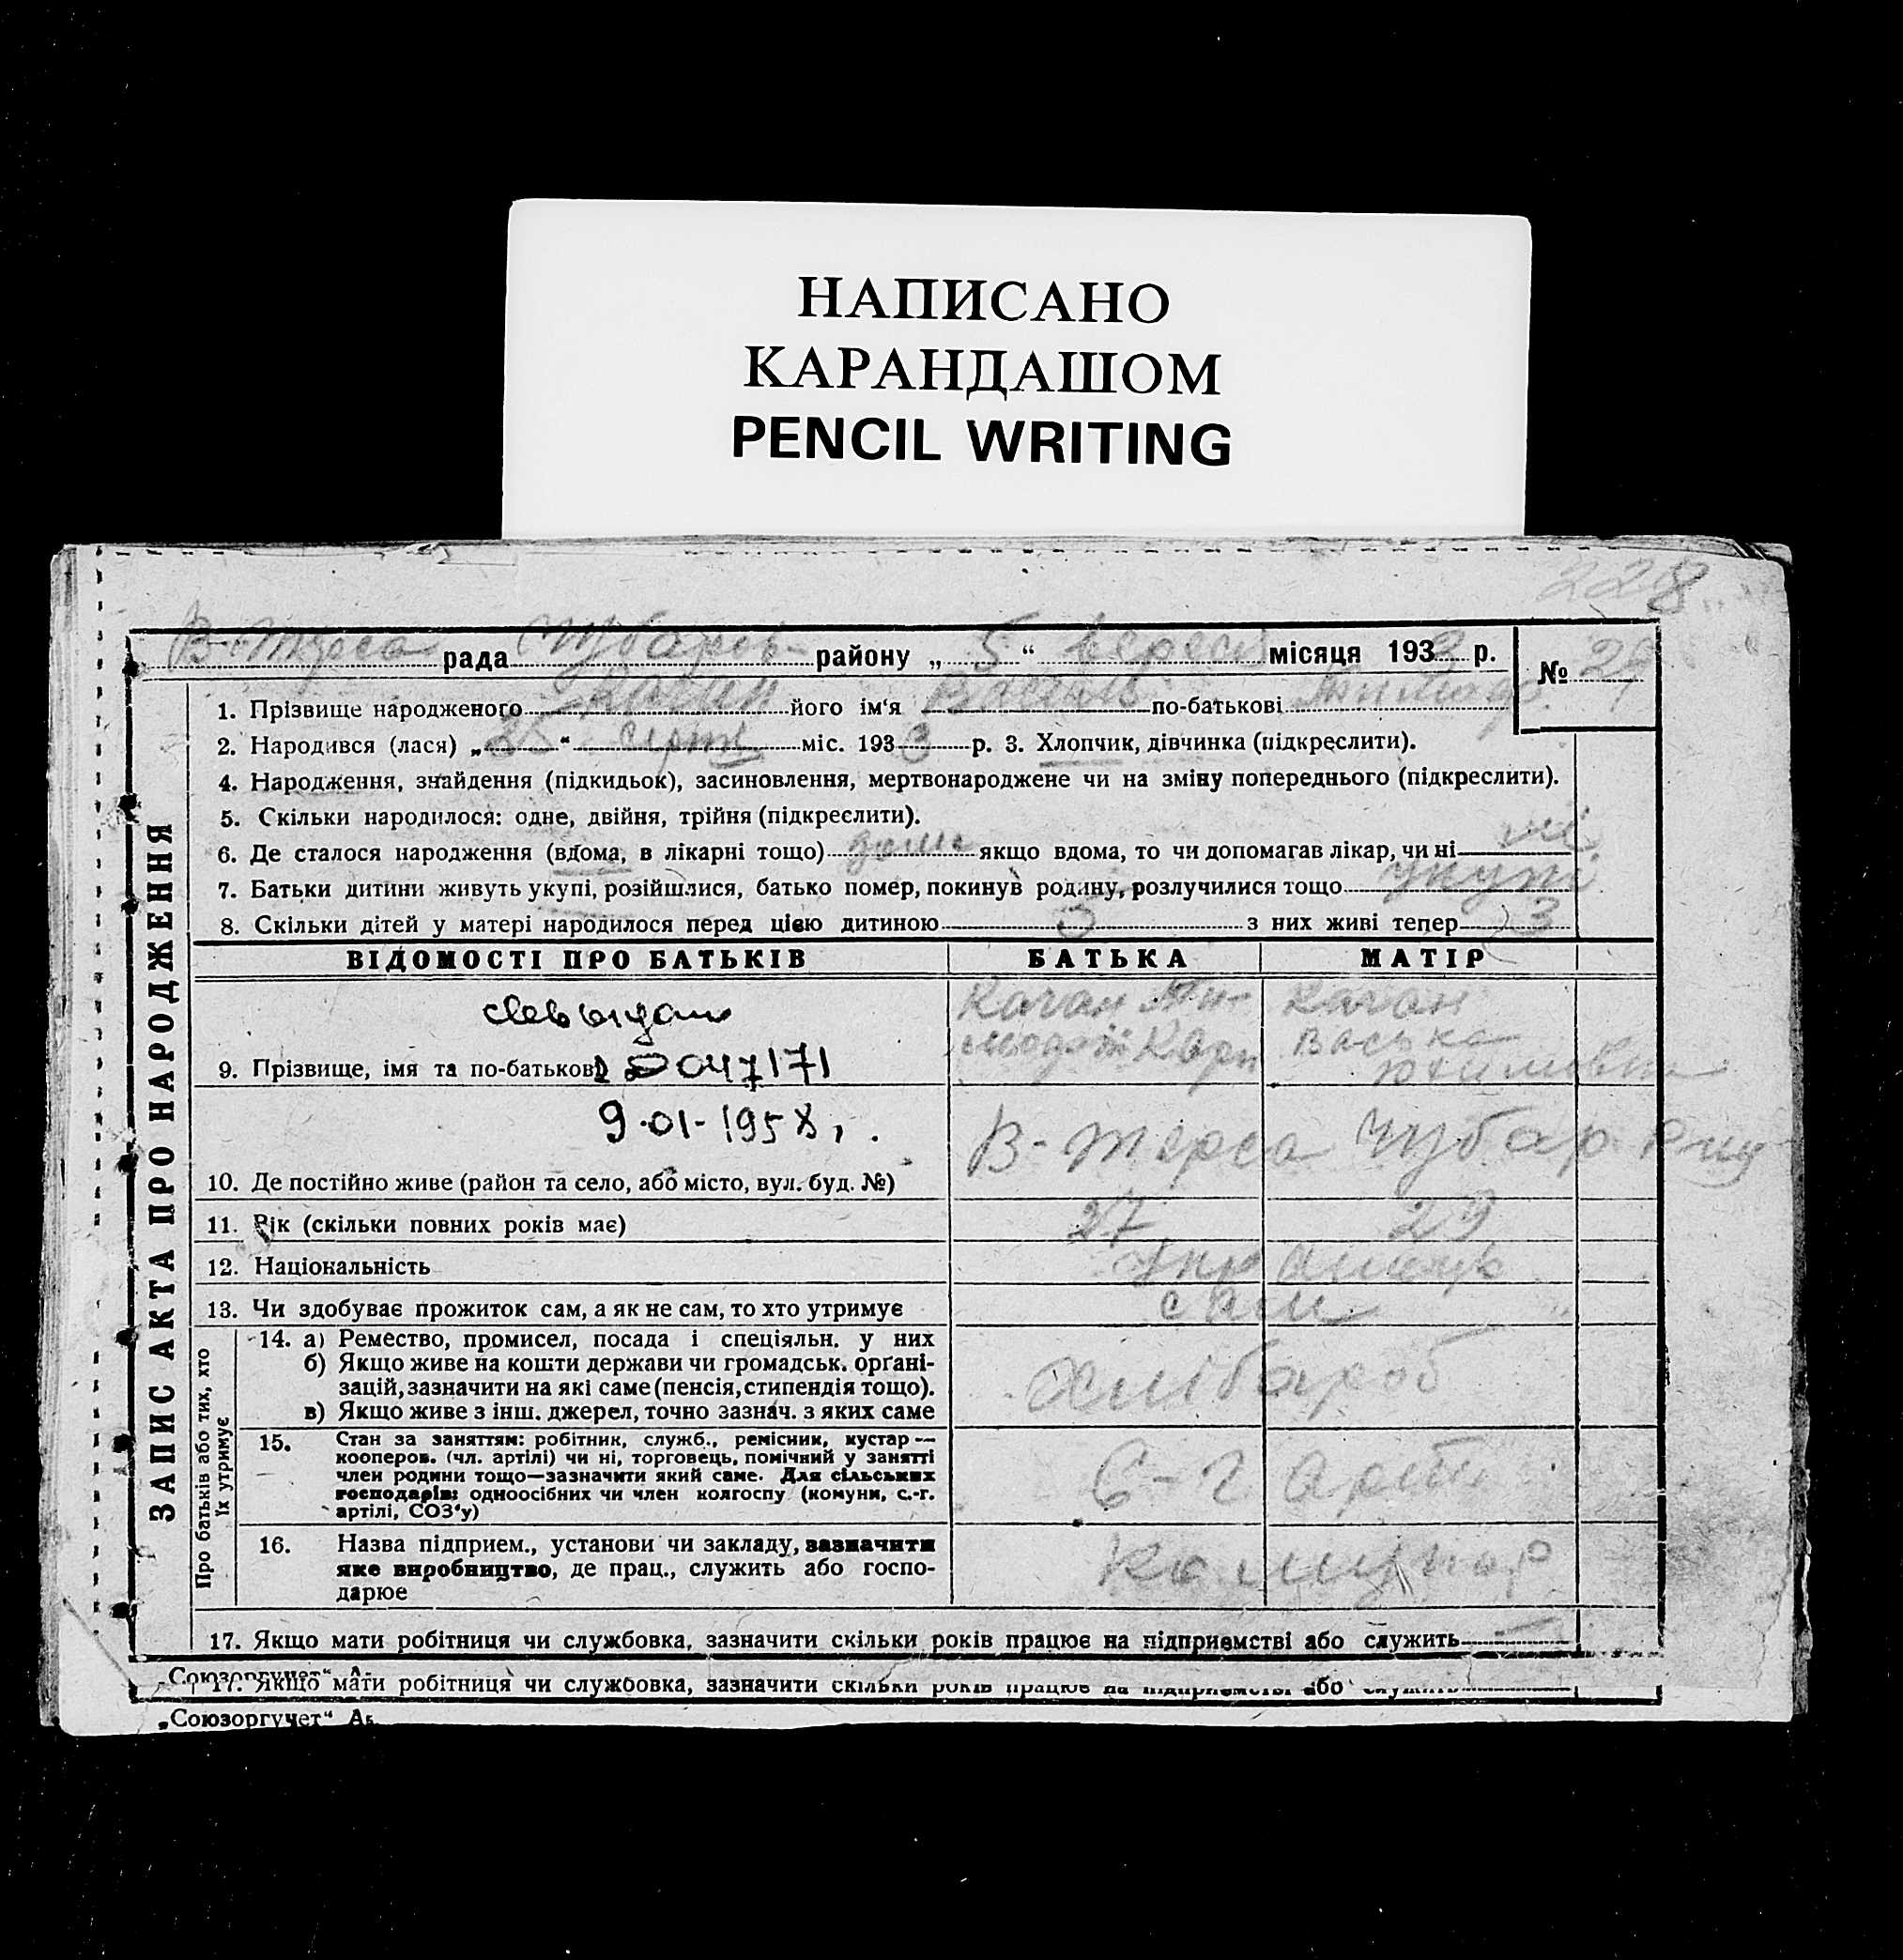 НАПИСАНО
КАРАНДАШОМ
PENCIL WRITING
228
В-Терса рада Чубарів- району „ 5 “ вересн місяця 1933 р.
№ 29
1. Прізвище народженого Качан його ім'я Василь по-батькові Тимоф.
2. Народився (лася) „ 25 “ серпн міс. 1933 р. 3. Хлопчик, дівчинка (підкреслити).
4. Народження, знайдення (підкидьок), засиновлення, мертвонароджене чи на зміну попереднього (підкреслити).
5. Скільки народилося: одне, двійня, трійня (підкреслити).
6. Де сталося народження (вдома, в лікарні тощо) дома якщо вдома, то чи допомагав лікар, чи ні ні
7. Батьки дитини живуть укупі, розійшлися, батько помер, покинув родину, розлучилися тощо укупі
8. Скільки дітей у матері народилося перед цією дитиною 5 з них живі тепер 3
ЗАПИС АКТА ПРО НАРОДЖЕННЯ
ВІДОМОСТІ ПРО БАТЬКІВ БАТЬКА МАТІР
9. Прізвище, імя та по-батькові 047171
Качан Ти-
мофій Карп
Качан
Васька
Юхимовна
9-01-1958
10. Де постійно живе (район та село, або місто, вул. буд. №) В-Терса Чубар р-ну
11. Вік (скільки повних років має) 27 29
12. Національність
13. Чи здобуває прожиток сам, а як не сам, то хто утримує сам
Про батьків або тих, хто
їх утримує
14. а) Ремество, промисел, посада і спеціяльн. у них
б) Якщо живе на кошти держави чи громадськ. орґані-
зацій, зазначити на які саме (пенсія, стипендія тощо).
в) Якщо живе з інш. джерел, точно зазнач. з яких саме
хлібороб
15. Стан за заняттям: робітник, служб., ремісник, кустар—
кооперов. (чл. артілі) чи ні, торговець, помічний у занятті
член родини тощо—зазначити який саме. Для сільських
господарів: одноосібних чи член колгоспу (комуни, с.-г.
артілі, СОЗ'у)
С-г арті
16. Назва підприєм., установи чи закладу, зазначити
яке виробництво, де прац., служить або госпо-
дарює
Комунар
17. Якщо мати робітниця чи службовка, зазначити скільки років працює на підприємстві або служить —
„Союзоргучет“ А
17. Якщо мати робітниця чи службовка, зазначити скільки років працює на підприємстві або служить
„Союзоргучет“